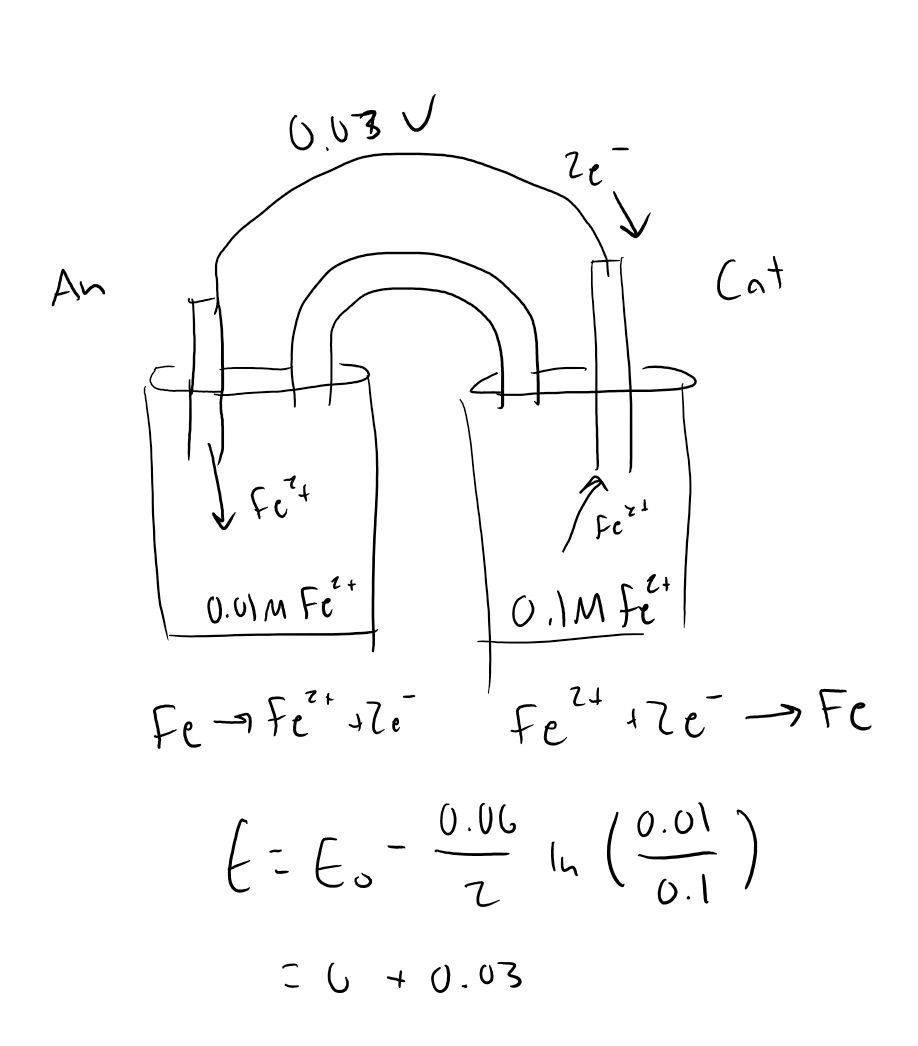 0.03 V
2e⁻
An
Cat
Fe²⁺
Fe²⁺
0.01M Fe²⁺
0.1M Fe²⁺
Fe → Fe²⁺ + 2e⁻
Fe²⁺ + 2e⁻ → Fe
E = E₀ - 0.06/2 ln (0.01/0.1)
= 0 + 0.03